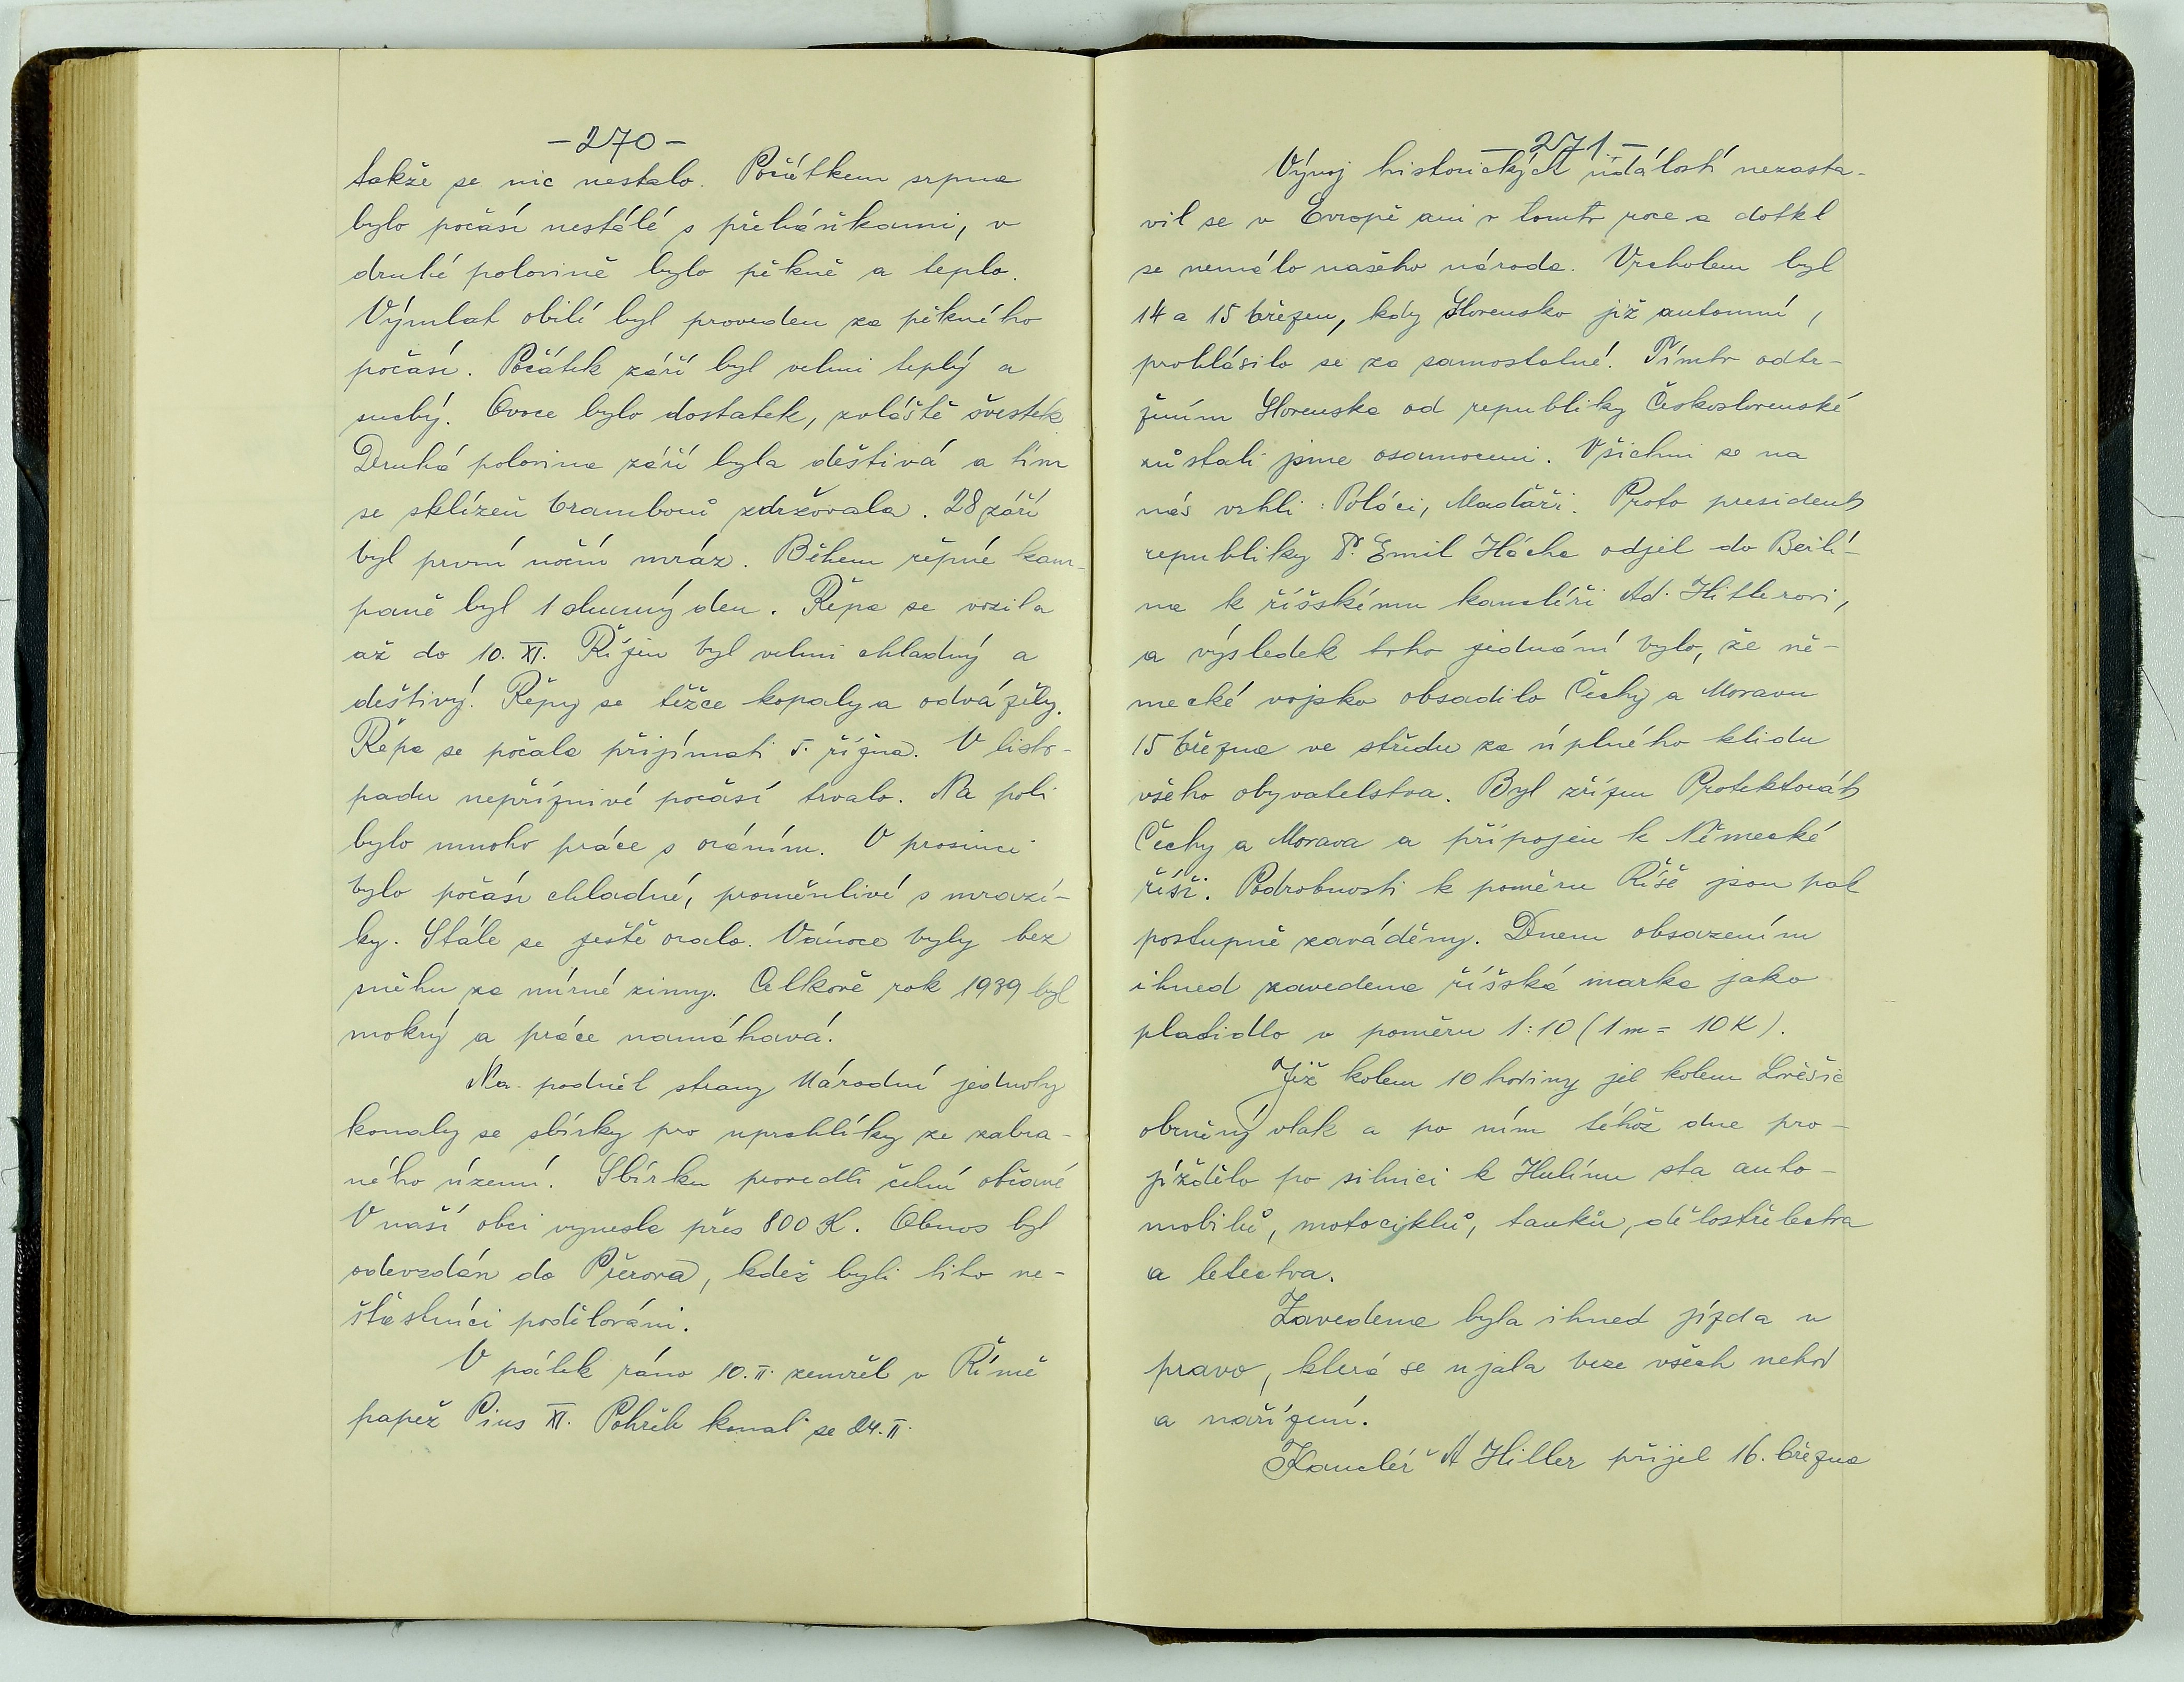 -270-
takže se nic nestalo. Počátkem srpna
bylo počasí nestálé s přeháňkami, v
druhé polovině bylo pěkně a teplo.
Výmlat obilí byl proveden za pěkného
počasí. Počátek září byl velmi teplý a
suchý. Ovoce bylo dostatek, zvláště švestek
Druhá polovina září byla deštivá a tím
se sklizeň bramborů zdržovala. 28 září
byl první noční mráz. Během řepné kam-
paně byl 1 slunný den. Řepa se vozila
až do 10. XI. Říjen byl velmi chladný a
deštivý. Řepy se těžce kopaly a odvážely.
Řepa se počala přijímati 5. října. V listo-
padu nepříznivé počasí trvalo. Na poli
bylo mnoho práce s oráním. V prosinci
bylo počasí chladné, proměnlivé s mrazí-
ky. Stále se ještě oralo. Vánoce byly bez
sněhu za mírné zimy. Celkově rok 1939 byl
mokrý a práce namáhavá.
Na podnět strany Národní jednoty
konaly se sbírky pro uprchlíky ze zabra-
ného území. Sbírku provedli čelní občané
V naší obci vynesla přes 800 K. Obnos byl
odevzdán do Přerova, kdež byli tito ne-
šťastníci podělováni.
V pátek ráno 10. II. zemřel v Římě
papež Pius XI. Pohřeb konal se 24. II.
-271-
Vývoj historických událostí nezasta-
vil se v Evropě ani v tomto roce a dotkl
se nemálo našeho národa. Vrcholem byl
14 a 15 březen, kdy Slovensko již autonmí,
prohlásilo se za samostatné. Tímto odtr-
žním Slovenska od republiky Československé
zůstali jsme osamoceni. Všichni se na
nás vrhli: Poláci, Maďaři. Proto president
republiky Dr. Emil Hácha odjel do Berlí-
na k říšskému kancléři Ad. Hitlerovi,
a výsledek toho jednání bylo, že ně-
mecké vojsko obsadilo Čechy a Moravu
15 března ve středu za úplného klidu
všeho obyvatelstva. Byl zřízen Protektorát
Čechy a Morava a připojen k Německé
říši. Podrobnosti k poměru Říše jsou pak
postupně zaváděny. Dnem obsazením
ihned zavedena říšská marka jako
platidlo v poměru 1:10 (1 m = 10 K).
Již kolem 10 hodiny jel kolem Lověšic
obrněný vlak a po ním téhož dne pro-
jíždělo po silnici k Hulínu sta auto-
mobilů, motocyklů, tanků, dělostřelectva
a letectva.
Zavedena byla ihned jízda v
pravo, která se ujala beze všech nehod
a nařízení.
Kancléř A Hitler přijel 16. března